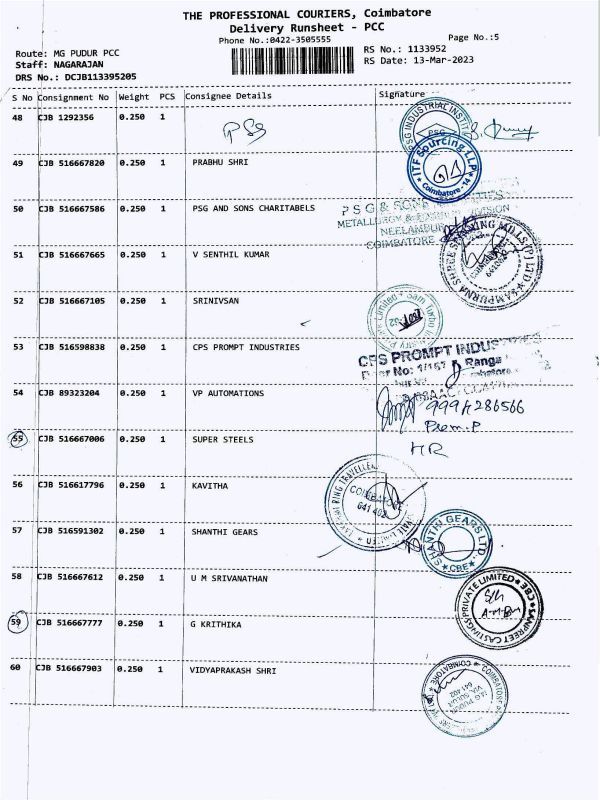 THE PROFESSIONAL COURIERS, Coimbatore
Delivery Runsheet - PCC
Phone No.:0422-3505555
Page No.:5
Route: MG PUDUR PCC
RS No.: 1133952
Staff: NAGARAJAN
RS Date: 13-Mar-2023
DRS No.: DCJB113395205
S No Consignment No Weight PCS Consignee Details Signature
48 CJB 1292356 0.250 1 PSG
PSG INDUSTRIAL INSTIT
PSG
49 CJB 516667820 0.250 1 PRABHU SHRI
ITF Sourcing LLP
Coimbatore - 14
50 CJB 516667586 0.250 1 PSG AND SONS CHARITABELS
PSG & SONS
METALLURGY & DIVISION
NEELAMBUR
COIMBATORE
51 CJB 516667665 0.250 1 V SENTHIL KUMAR
SAMPURNA MILLS (P) LTD
52 CJB 516667105 0.250 1 SRINIVSAN
Limited Sam Turbo
53 CJB 516598838 0.250 1 CPS PROMPT INDUSTRIES
CPS PROMPT INDUSTRIES
Door No: 1/157 Ranga
54 CJB 89323204 0.250 1 VP AUTOMATIONS
Prem.P
55 CJB 516667006 0.250 1 SUPER STEELS
HR
56 CJB 516617796 0.250 1 KAVITHA
COIMBATORE
641 402
57 CJB 516591302 0.250 1 SHANTHI GEARS
SHANTHI GEARS LTD.,
CBE
58 CJB 516667612 0.250 1 U M SRIVANATHAN
SANPREET CASTINGS PRIVATE LIMITED CBE
59 CJB 516667777 0.250 1 G KRITHIKA
60 CJB 516667903 0.250 1 VIDYAPRAKASH SHRI
COIMBATORE
M.G PUDUR
641 402